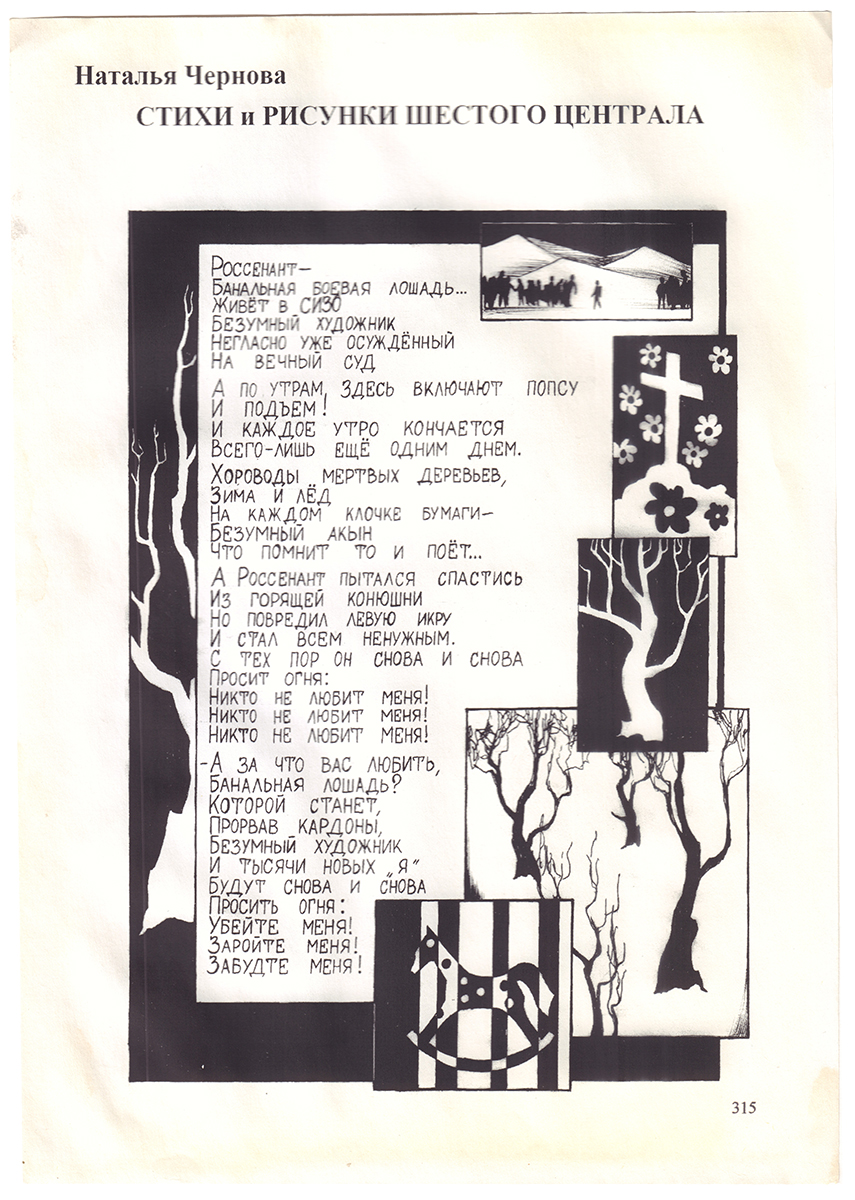 Наталья Чернова
СТИХИ и РИСУНКИ ШЕСТОГО ЦЕНТРАЛА
РОССЕНАНТ–
БАНАЛЬНАЯ БОЕВАЯ ЛОШАДЬ...
ЖИВЁТ В СИЗО
БЕЗУМНЫЙ ХУДОЖНИК
НЕГЛАСНО УЖЕ ОСУЖДЁННЫЙ
НА ВЕЧНЫЙ СУД
А ПО УТРАМ ЗДЕСЬ ВКЛЮЧАЮТ ПОПСУ
И ПОДЪЕМ!
И КАЖДОЕ УТРО КОНЧАЕТСЯ
ВСЕГО-ЛИШЬ ЕЩЁ ОДНИМ ДНЕМ.
ХОРОВОДЫ МЕРТВЫХ ДЕРЕВЬЕВ,
ЗИМА И ЛЁД
НА КАЖДОМ КЛОЧКЕ БУМАГИ–
БЕЗУМНЫЙ АКЫН
ЧТО ПОМНИТ ТО И ПОЁТ...
А РОССЕНАНТ ПЫТАЛСЯ СПАСТИСЬ
ИЗ ГОРЯЩЕЙ КОНЮШНИ
НО ПОВРЕДИЛ ЛЕВУЮ ИКРУ
И СТАЛ ВСЕМ НЕНУЖНЫМ.
С ТЕХ ПОР ОН СНОВА И СНОВА
ПРОСИТ ОГНЯ:
НИКТО НЕ ЛЮБИТ МЕНЯ!
НИКТО НЕ ЛЮБИТ МЕНЯ!
НИКТО НЕ ЛЮБИТ МЕНЯ!
-А ЗА ЧТО ВАС ЛЮБИТЬ,
БАНАЛЬНАЯ ЛОШАДЬ?
КОТОРОЙ СТАНЕТ,
ПРОРВАВ КАРДОНЫ,
БЕЗУМНЫЙ ХУДОЖНИК
И ТЫСЯЧИ НОВЫХ „Я"
БУДУТ СНОВА И СНОВА
ПРОСИТЬ ОГНЯ:
УБЕЙТЕ МЕНЯ!
ЗАРОЙТЕ МЕНЯ!
ЗАБУДТЕ МЕНЯ!
315